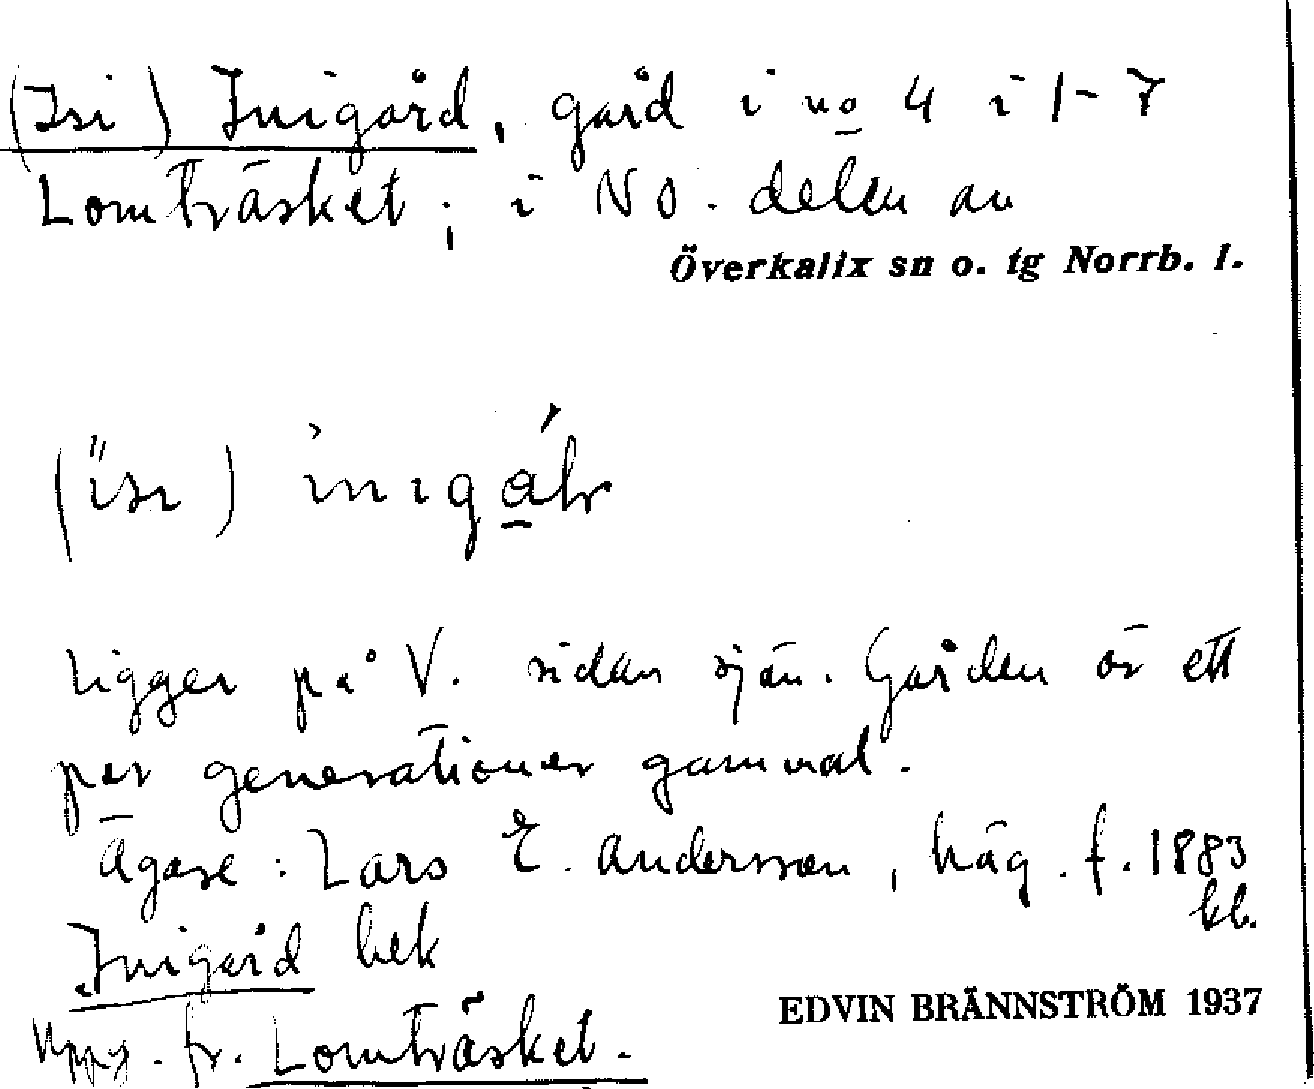 (Isi) Inigård, gård i no 4 i 1-7
Lomträsket; i NO. delen av
Överkalix sn o. tg Norrb. l.
(ïsı) ìnıgálr
Ligger på V. sidan sjön. Gården är ett
par generationer gammal.
Ägare: Lars E. Andersson, häg. f. 1883
kb.
Inigård bek
Uppg. fr. Lomträsket.
EDVIN BRÄNNSTRÖM 1937